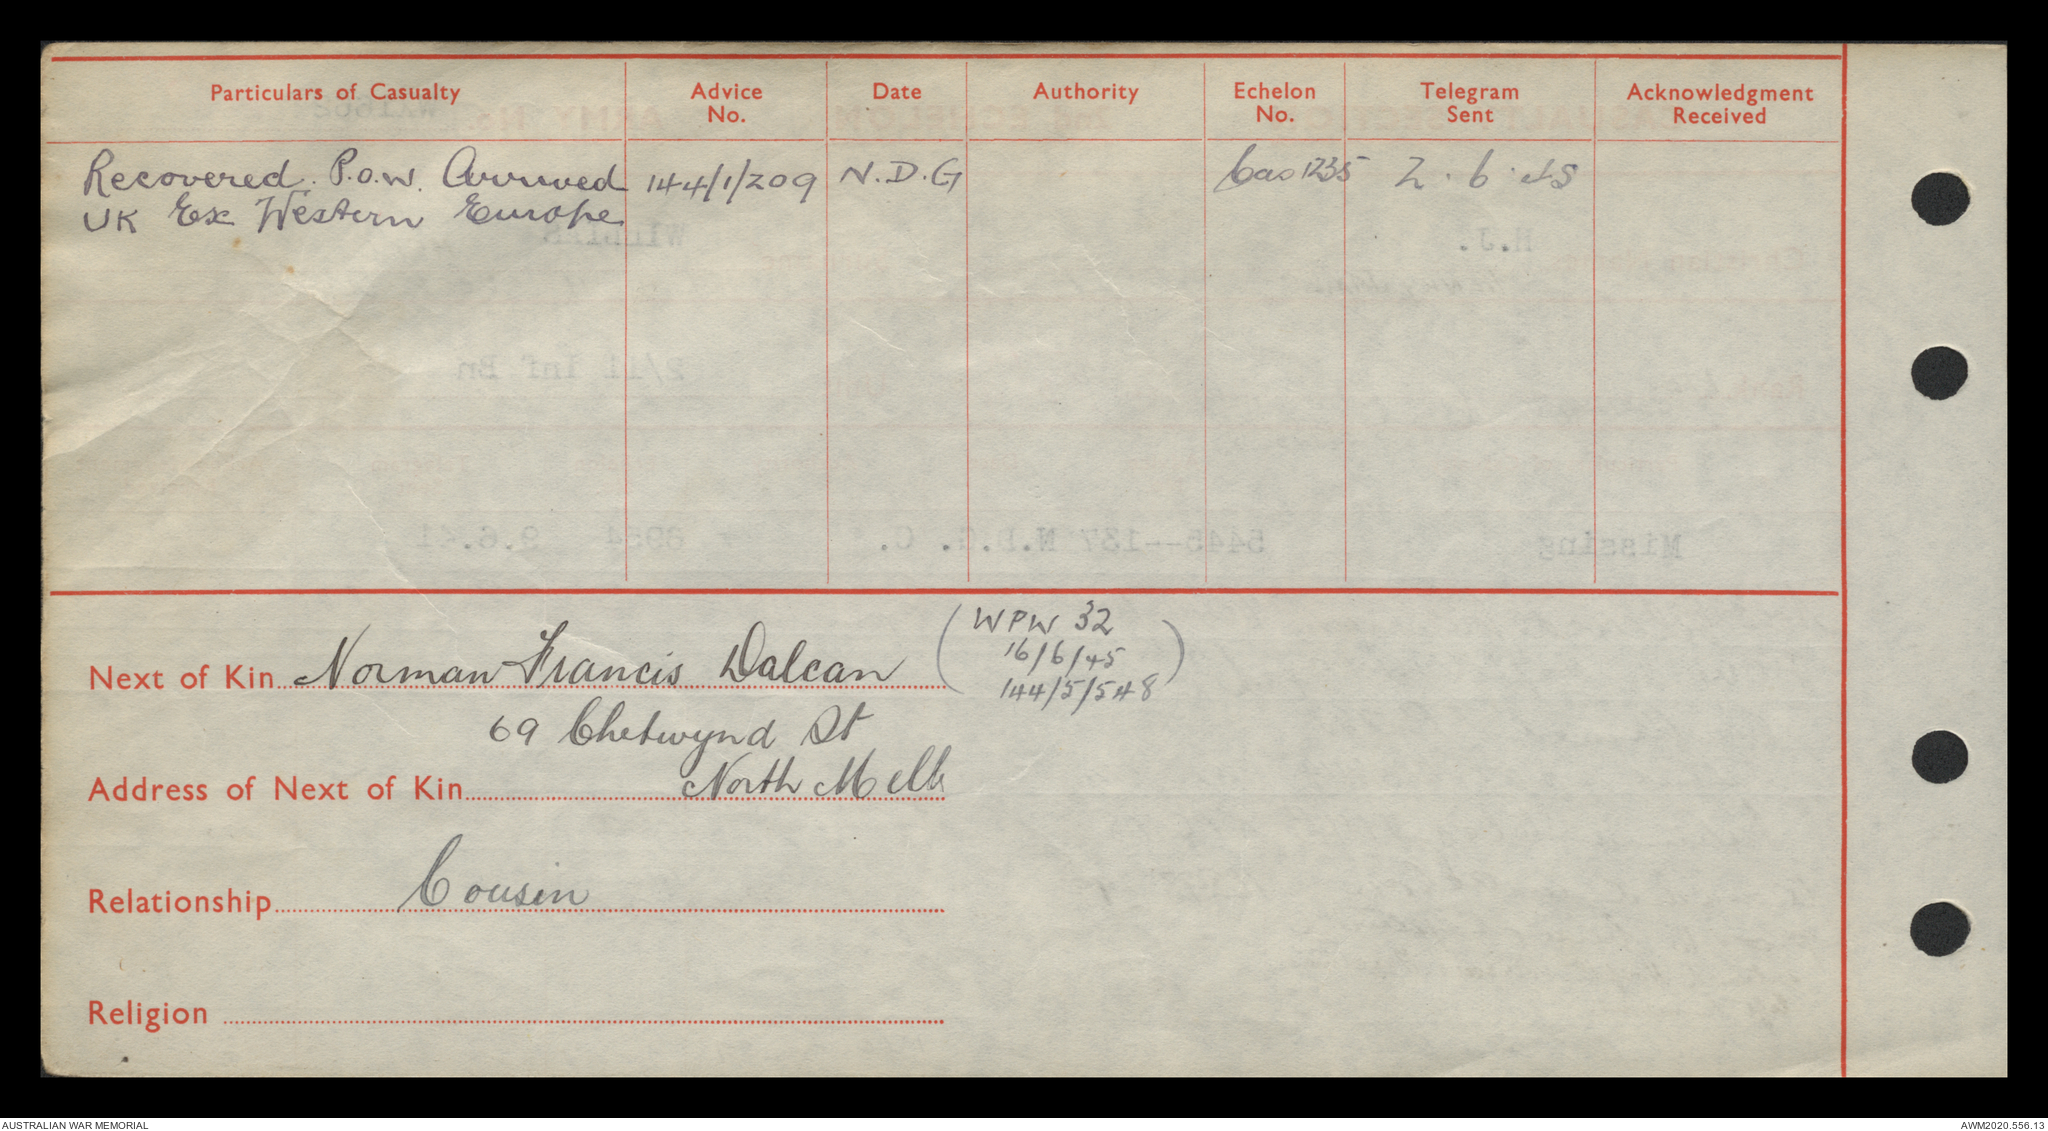 Particulars of Casualty
Advice No.
Date
Authority
Echelon No.
Telegram Sent
Acknowledgment Received
Recovered. P.O.W. Arrived 144/1/209 N.D.G Cas 1235 2.6.45
UK Ex Western Europe
Next of Kin Norman Francis Dalean
(WPW 32
16/6/45
144/5/548)
69 Chetwynd St
Address of Next of Kin North Melb
Relationship Cousin
Religion
AUSTRALIAN WAR MEMORIAL
AWM2020.556.13